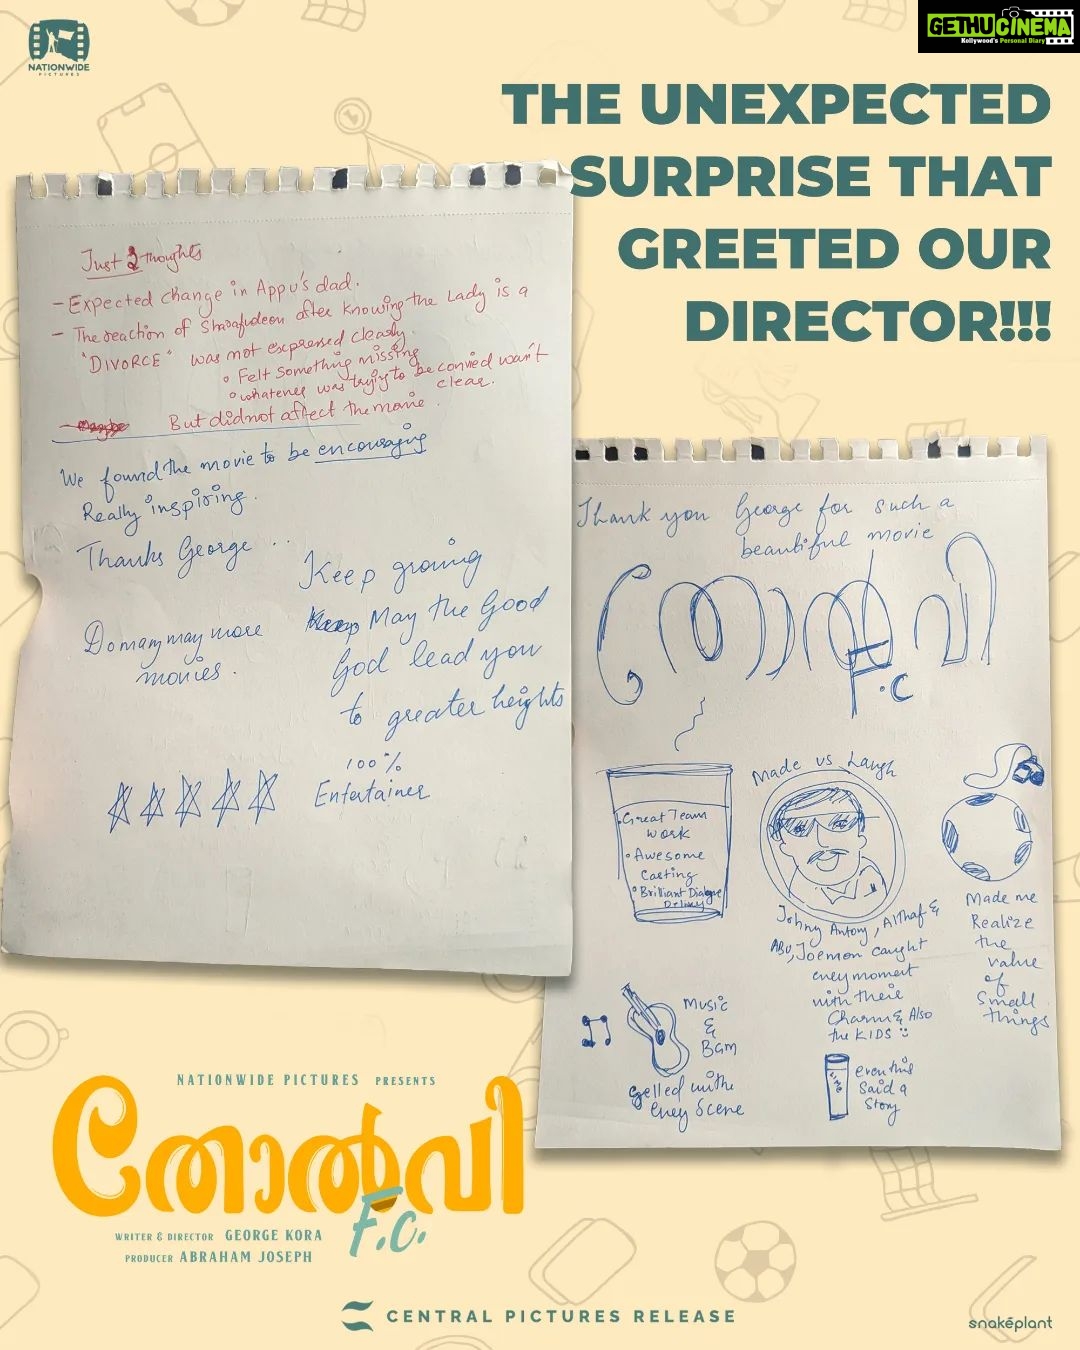 NATIONWIDE
PICTURES
GETHUCINEMA
Kollywood's Personal Diary
THE UNEXPECTED
SURPRISE THAT
GREETED OUR
DIRECTOR!!!
Just 2 thoughts
- Expected change in Appu's dad.
- The reaction of Sharafudeen after knowing the Lady is a
"DIVORCE" was not expressed clearly.
• Felt something missing
• whatever was trying to be convied wan't
clear.
But did not affect the movie.
We found the movie to be encouraging
Really inspiring.
Thanks George ..
Keep growing
May the Good
God lead you
to greater heights
Do many may more
movies.
100%
Entertainer
Thank you George for such a
beautiful movie
തോൽവി
F.C
• Great Team
work
• Awesome
Casting
• Brilliant Dialogue
Delivery
Made us Laugh
Johny Antony, Althaf &
ABU, Joemon caught
every moment
with their
Charm & Also
the KIDS
Made me
Realize
the
value
of
Small
things
Music
&
BGM
gelled with
every Scene
even this
Said a
Story
NATIONWIDE PICTURES PRESENTS
തോൽവി
F.C.
WRITER & DIRECTOR GEORGE KORA
PRODUCER ABRAHAM JOSEPH
CENTRAL PICTURES RELEASE
snakeplant